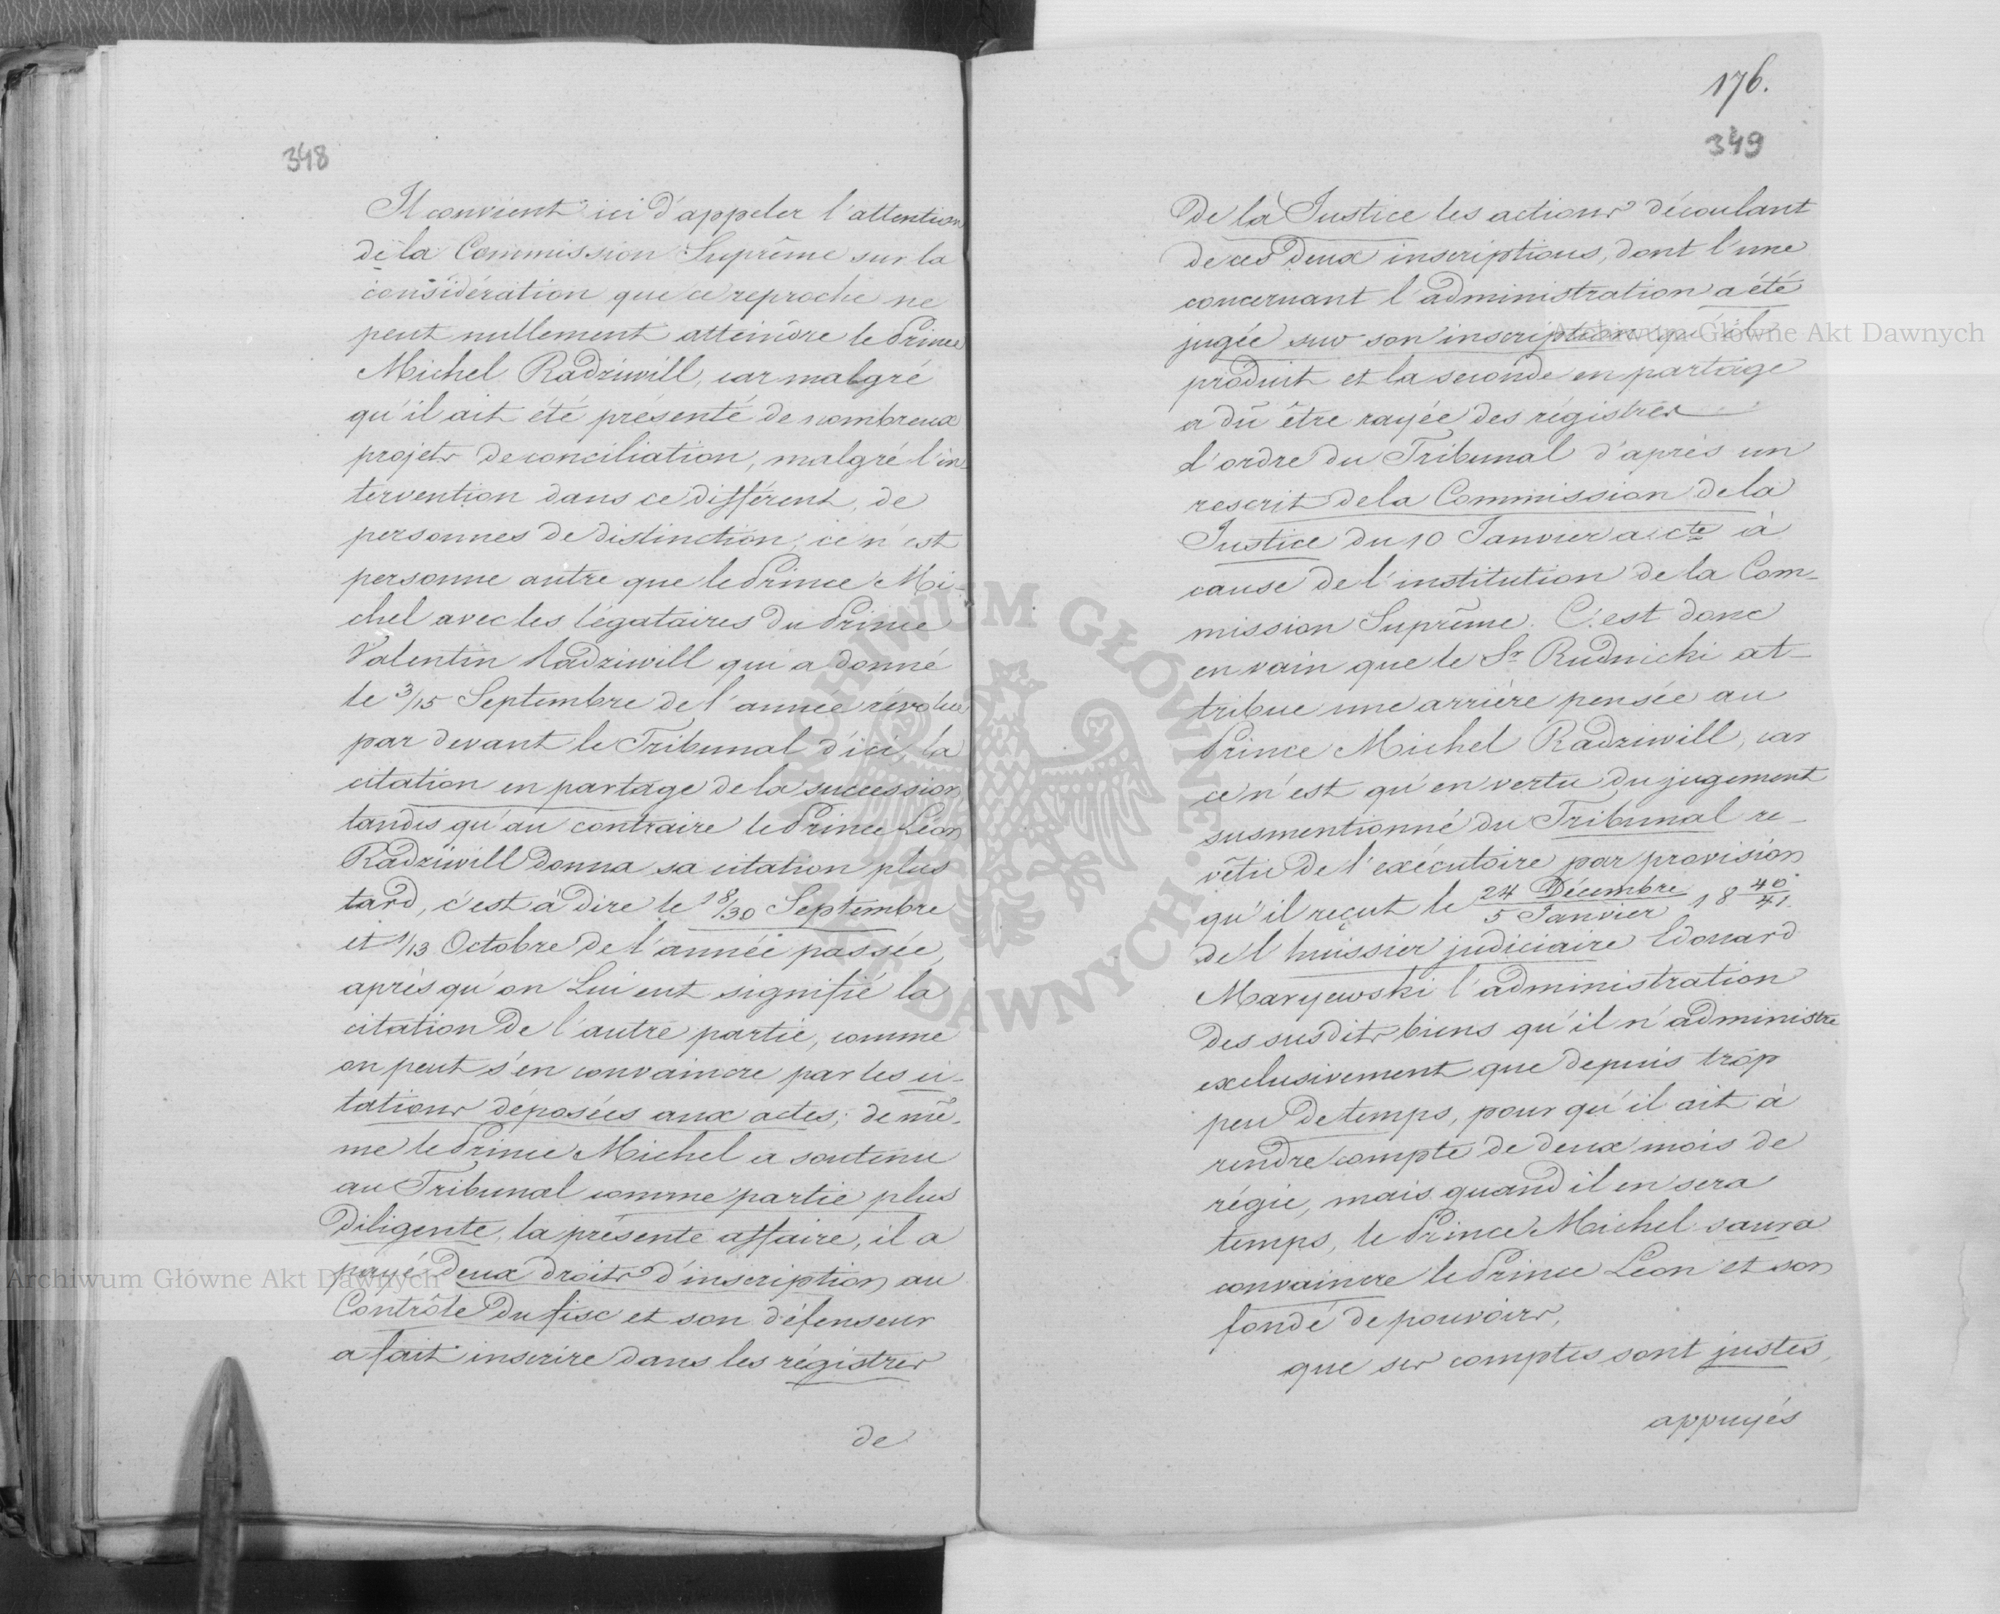 348
Il convient ici d'appeler l'attention
de la Commission Suprême sur la
considération que ce reproche ne
peut nullement atteindre le Prince
Michel Radziwill, car malgré
qu'il ait été présenté de nombreux
projets de conciliation, malgré l'in
tervention dans ce différent, de
personnes de distinction, ce n'est
personne autre que le Prince Mi-
chel avec les légataires du Prince
Valentin Radziwill qui a donné
le 3/15 Septembre de l'année révolue
par devant le Tribunal d'ici, la
citation en partage de la succession
tandis qu'au contraire le Prince Léon
Radziwill donna sa citation plus
tard, c'est à dire le 18/30 Septembre
et 1/13 Octobre de l'année passée,
après qu'on Lui eut signifié la
citation de l'autre partie, comme
on peut s'en convaincre par les ci-
tations déposées aux actes; de mê-
me le Prince Michel a soutenu
au Tribunal comme partie plus
diligente, la présente affaire, il a
payé deux droits d'inscription au
Contrôle du fisc et son défenseur
a fait inscrire dans les régistres
de
176.
349
de la Justice les actions découlant
de ces deux inscriptions, dont l'une
concernant l'administration a été
jugée sur son inscription qu'il
produit et la seconde en partage
a dû être rayée des régistres
d'ordre du Tribunal d'après un
rescrit de la Commission de la
Justice du 10 Janvier a. cte à
cause de l'institution de la Com-
mission Suprême. C'est donc
en vain que le Sr Rudnicki at-
tribue une arrière pensée au
Prince Michel Radziwill, car
ce n'est qu'en vertu du jugement
susmentionné du Tribunal re-
vêtu de l'exécutoire par provision
qu'il reçut le 24 Décembre/5 Janvier 18 40/41.
de l'huissier judiciaire Edouard
Maryewski l'administration
des susdits biens qu'il n'administre
exclusivement que depuis trop
peu de temps, pour qu'il ait à
rendre compte de deux mois de
régie, mais quand il en sera
temps, le Prince Michel saura
convaincre le Prince Léon et son
fondé de pouvoirs,
que ses comptes sont justes,
appuyés
Archiwum Główne Akt Dawnych
Archiwum Główne Akt Dawnych
ARCHIWUM GŁÓWNE AKT DAWNYCH